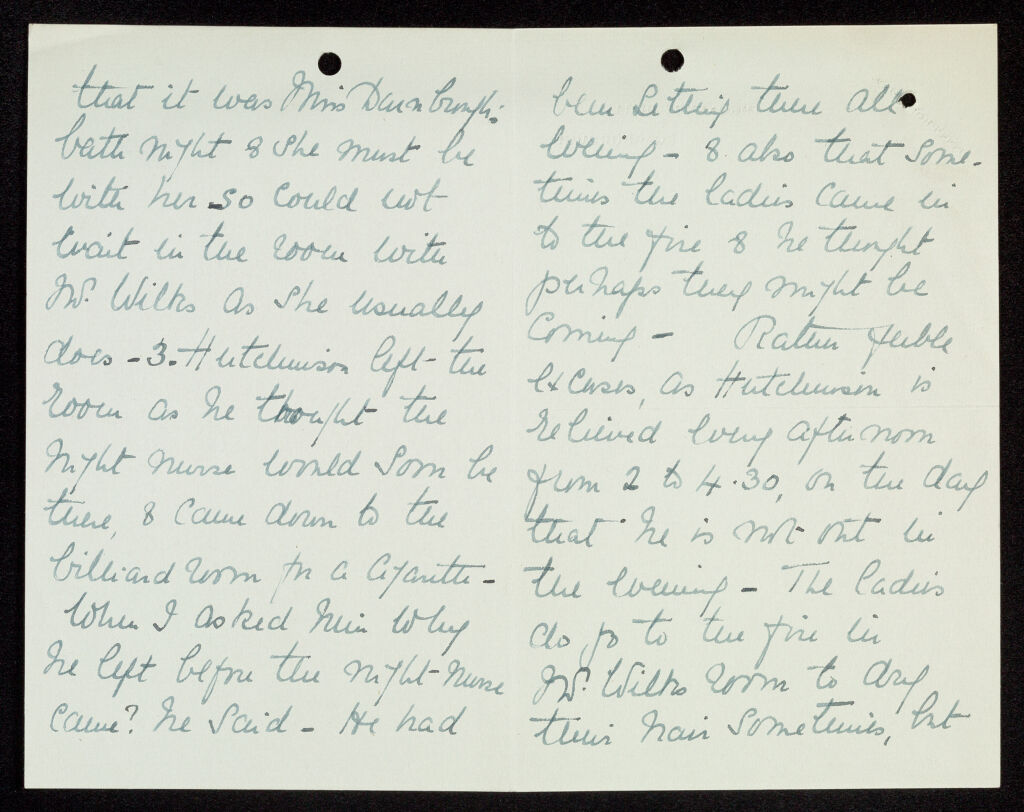 that it was Miss Darnbrough's
bath night & she must be
with her so could not
wait in the room with
Mr. Wilks as she usually
does - 3. Hutchinson left the
room as he thought the
night nurse would soon be
there, & came down to the
billiard room for a cigarette -
When I asked him why
he left before the night-nurse
came? he said - He had
been sitting there all
evening - & also that some-
times the ladies came in
to the fire & he thought
perhaps they might be
coming - Rather feeble
excuses, as Hutchinson is
relieved every afternoon
from 2 to 4.30, on the day
that he is not out in
the evening - The ladies
do go to the fire in
Mr. Wilks room to dry
their hair sometimes, but